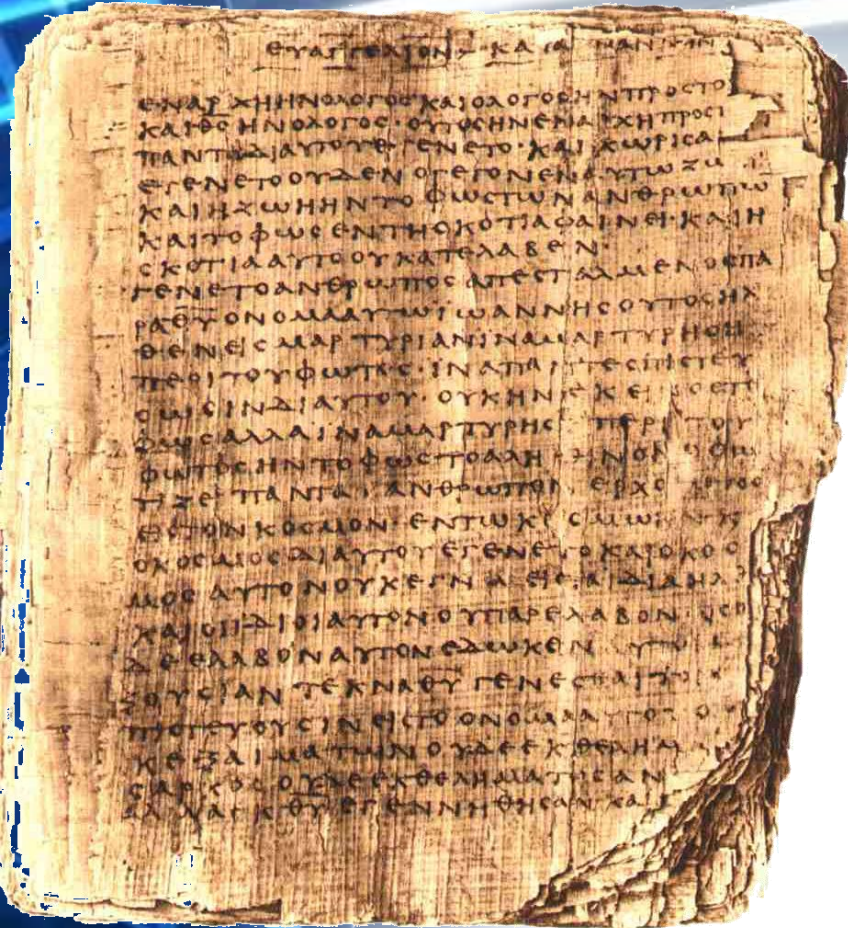 ΕΥΑΓΓΕΛΙΟΝ ΚΑΤΑ
ΕΝΑΡΧΗΗΝΟΛΟΓΟϹΚΑΙΟΛΟΓΟϹΗΝΠΡΟϹΤΟ
ΚΑΙΘϹΗΝΟΛΟΓΟϹ·ΟΥΤΟϹΗΝΕΝΑΡΧΗΠΡΟϹ
ΠΑΝΤΑΔΙΑΥΤΟΥΕΓΕΝΕΤΟ·ΚΑΙΧΩΡΙϹΑ
ΕΓΕΝΕΤΟΟΥΔΕΝΟΓΕΓΟΝΕΝΑΥΤΩΖΩ
ΚΑΙΗΖΩΗΗΝΤΟΦΩϹΤΩΝΑΝΘΡΩΠΩ
ΚΑΙΤΟΦΩϹΕΝΤΗϹΚΟΤΙΑΦΑΙΝΕΙ·ΚΑΙΗ
ϹΚΟΤΙΑΑΥΤΟΟΥΚΑΤΕΛΑΒΕΝ·
ΓΕΝΕΤΟΑΝΘΡΩΠΟϹΑΠΕϹΤΑΛΜΕΝΟϹΠΑ
ΡΑΘΥΟΝΟΜΑΑΥΤΩΙΩΑΝΝΗϹΟΥΤΟϹΗΛ
ΘΕΝΕΙϹΜΑΡΤΥΡΙΑΝΙΝΑΜΑΡΤΥΡΗϹΗ
ΠΕΡΙΤΟΥΦΩΤΟϹ·ΙΝΑΠΑΝΤΕϹΠΙϹΤΕΥ
ϹΩϹΙΝΔΙΑΥΤΟΥ·ΟΥΚΗΝΕΚΕΙΝΟϹΤΟ
ΦΩϹΑΛΛΑΙΝΑΜΑΡΤΥΡΗϹΗΠΕΡΙΤΟΥ
ΦΩΤΟϹΗΝΤΟΦΩϹΤΟΑΛΗ ΙΝΟΝ ΟΦΩ
ΤΙΖΕΙΠΑΝΤΑΑΝΘΡΩΠΟΝ ΕΡΧΟ
ΕΙϹΤΟΝΚΟϹΜΟΝ·ΕΝΤΩΚΟϹΜΩ
ΟΚΟϹΜΟϹΔΙΑΥΤΟΥΕΓΕΝΕΤΟΚΑΙΟΚΟϹ
ΜΟϹΑΥΤΟΝΟΥΚΕΓΝΩ ΕΙϹΤΑΙΔΙΑΗΛ
ΚΑΙΟΙΙΔΙΟΙΑΥΤΟΝΟΥΠΑΡΕΛΑΒΟΝ·ΟϹΟΙ
ΔΕΕΛΑΒΟΝΑΥΤΟΝΕΔΩΚΕΝ ΑΥΤΟΙ
ΞΟΥϹΙΑΝΤΕΚΝΑΘΥΓΕΝΕϹΘΑΙΤΟΙ
ΠΙϹΤΕΥΟΥϹΙΝΕΙϹΤΟΟΝΟΜΑΑΥΤΟΥ
ΚΕΞΑΙΜΑΤΩΝΟΥΔΕΕΚΘΕΛΗΜ
ϹΑΡΚΟϹΟΥΔΕΕΚΘΕΛΗΜΑΤΟϹΑΝ
ΑΛΛΑΕΚΘΥΕΓΕΝΝΗΘΗϹΑΝΚΑΙ